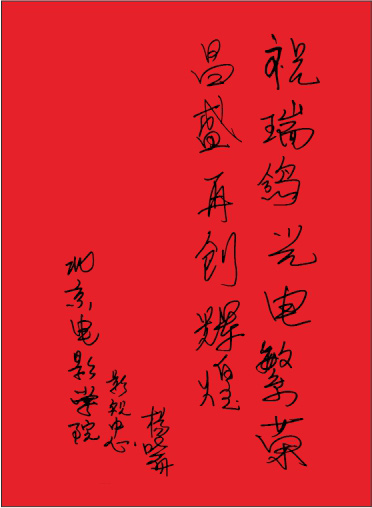 祝瑞鸽光电繁荣
昌盛再创辉煌
北京电影学院
影视中心
杨